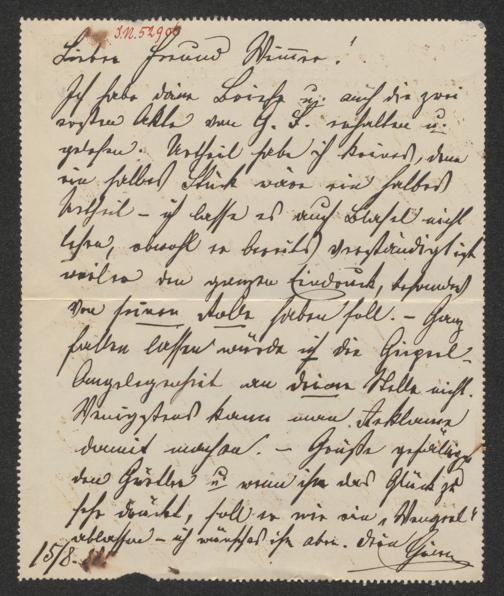 J.N. 5290
Lieber Freund Wimmer!
Ich habe deine Briefe u. auch die zwei
ersten Akte von G. S. erhalten u.
gelesen. Urtheil habe ich keines, denn
ein halbes Stück wäre ein halbes
Urtheil – ich lasse es auch Blasel nicht
lesen, obwohl er bereits verständigt ist
weil er den ganzen Eindruck, besonders
von seiner Rolle haben soll. – Ganz
fallen lassen würde ich die
Angelegenheit an deiner Stelle nicht.
Wenigstens kann man Reklame
damit machen. – Grüße gefälligst
den u. wenn ihn das Glück zu
sehr drückt, soll er mir ein "
ablassen – ich wünsches ihm aber. Dein
15/8.